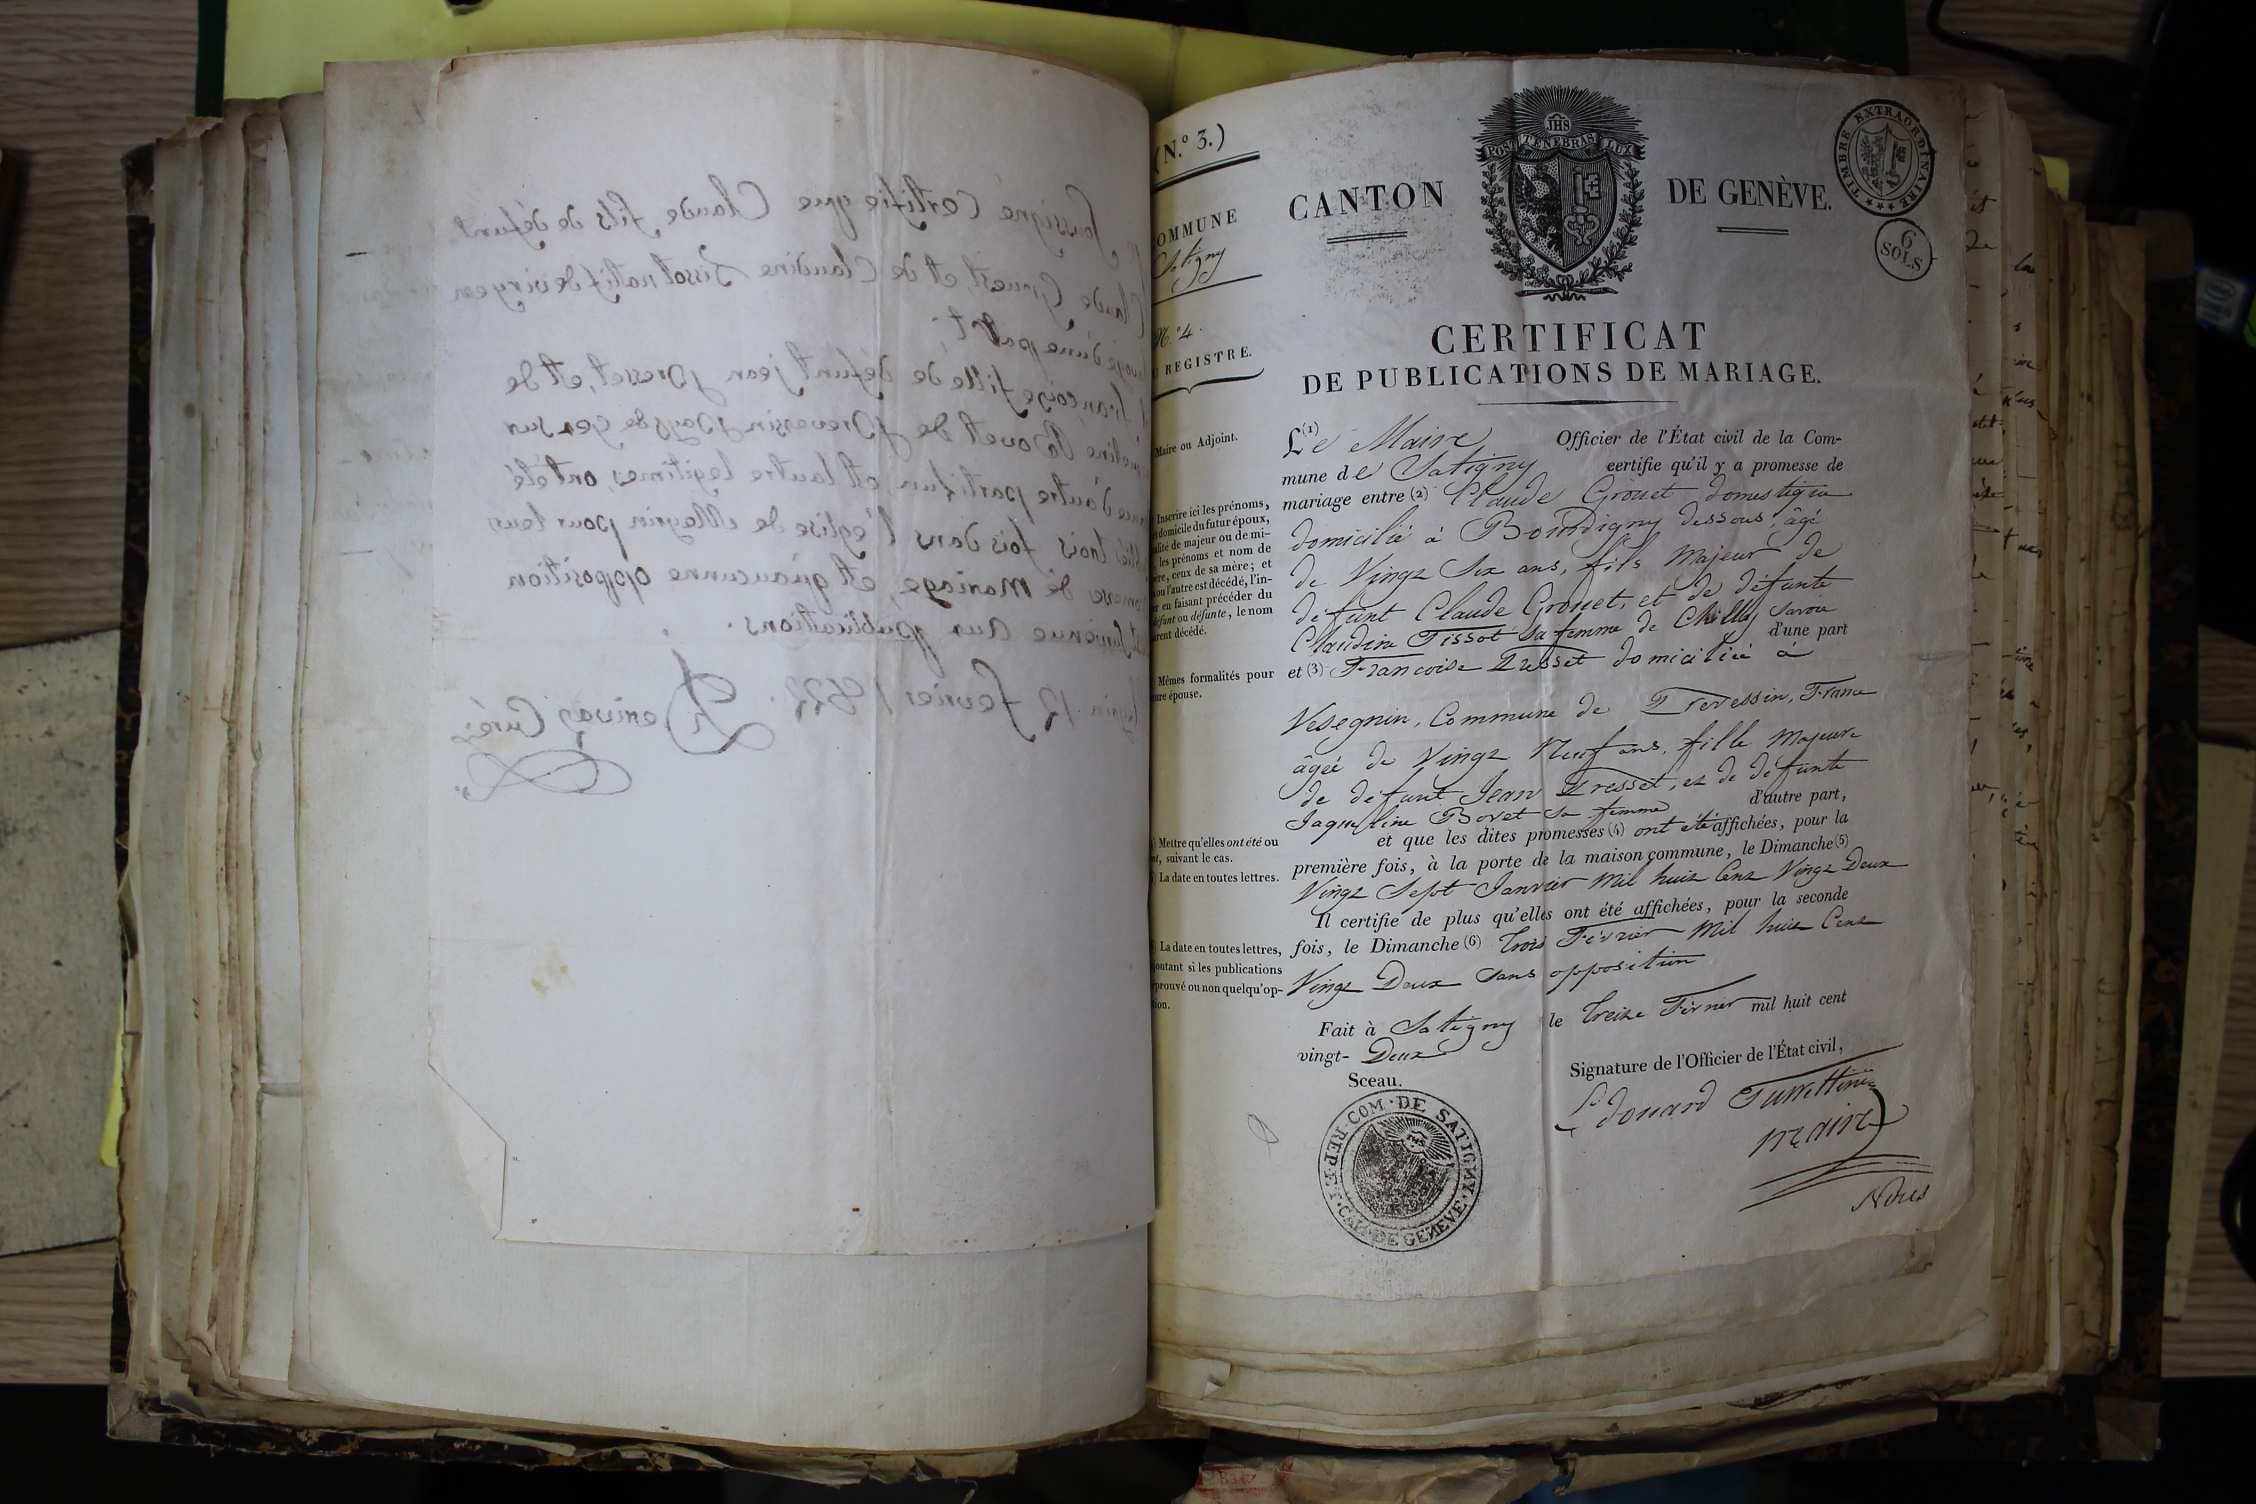 soussigné certifie que Claude fils de défunt
Claude Gruest, et de Claudine Tissot natif de
d'une part;
françoise fille de défunt jean presset, et de
Bovet de prevessin pays de gex sur
d'autre part; l'un et l'autre legitimes, ont été
trois fois dans l'église de Meyrin pour leur
de mariage, et qu'aucunne opposition
survenue aux publications.
12 fevrier 1822.
Curé
(N.º 3.)
CANTON DE GENÈVE.
JHS
POST TENEBRAS LUX
TIMBRE EXTRAORDINAIRE
6
SOLS
COMMUNE
Satigny
N.º 4.
REGISTRE.
CERTIFICAT
DE PUBLICATIONS DE MARIAGE.
Maire ou Adjoint.
Le (1) Maire Officier de l'État civil de la Com-
mune de Satigny certifie qu'il y a promesse de
mariage entre (2) Claude Grouet domestique
domicilié à Bourdigny dessous, âgé
de Vingt Six ans, fils Majeur de
défunt Claude Grouet, et de défunte
Claudine Tissot sa femme de Chilly Savoie d'une part
et (3) Francoise Presset domiciliée à
Vesegnin, Commune de Prevessin, France
âgée de Vingt Neuf ans, fille Majeure
de défunt Jean Presset, et de défunte
Jaqueline Bovet sa femme d'autre part,
et que les dites promesses (4) ont été affichées, pour la
première fois, à la porte de la maison commune, le Dimanche (5)
Vingt Sept Janvier Mil huit Cent Vingt Deux
Il certifie de plus qu'elles ont été affichées, pour la seconde
fois, le Dimanche (6) trois Février Mil huit Cent
Vingt Deux sans opposition
Fait à Satigny le Treize Février mil huit cent
vingt- Deux
Signature de l'Officier de l'État civil,
Sceau.
Edouard Turrettini
maire
Nous
REP. ET CAN. DE GENEVE. COM. DE SATIGNY.
Inscrire ici les prénoms,
domicile du futur époux,
qualité de majeur ou de mi-
les prénoms et nom de
père, ceux de sa mère; et
ou l'autre est décédé, l'in-
en faisant précéder du
défunt ou défunte, le nom
parent décédé.
Mêmes formalités pour
future épouse.
Mettre qu'elles ont été ou
suivant le cas.
La date en toutes lettres.
La date en toutes lettres,
ajoutant si les publications
éprouvé ou non quelqu'op-